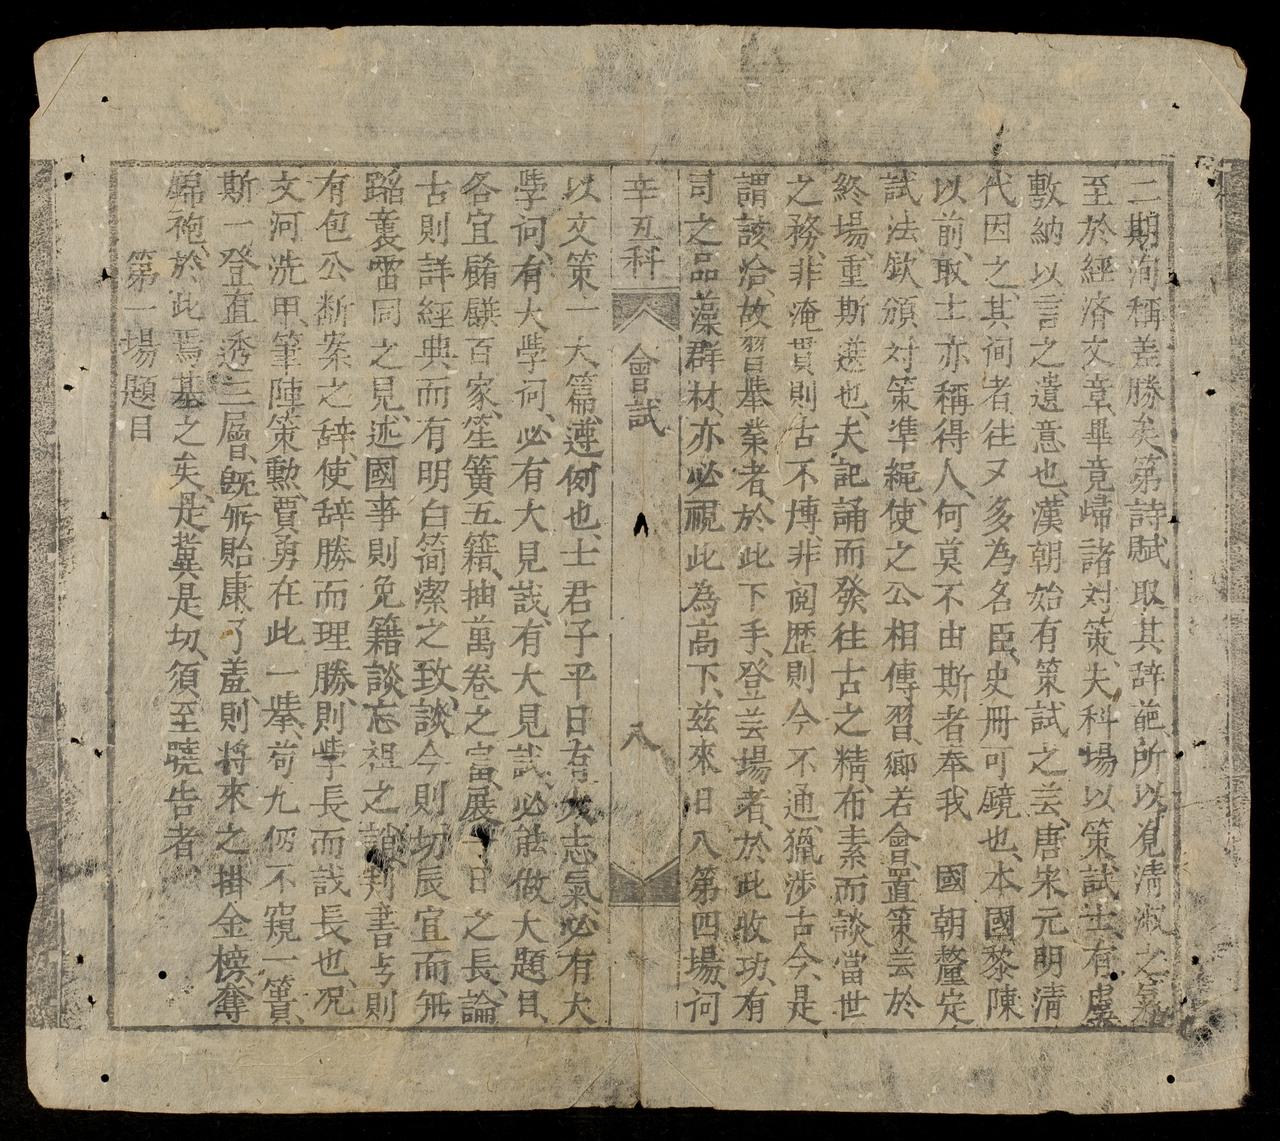 二期洵稱差勝矣、第詩賦取其辞葩、所以覓清淑之氣
至於經済文章、畢竟歸諸対策、夫科場以策試士、有虞
敷納以言之遺意也、漢朝始有策試之芸、唐宋元明清
代因之、其问者、往又多為名臣、史冊可鏡也、本國黎陳
以前、取士亦稱得人、何莫不由斯者奉我　國朝釐定
試法、欽頒対策凖繩、使之公相傳習、鄉若會、置策芸於
終場、重斯选也、夫記誦而發往古之精、布素而談當世
之務、非淹貫則古不博、非阅歴則今不通、獵涉古今、是
謂該洽、故習舉業者、於此下手、登芸場者、於此收功、有
司之品藻群材、亦必視此為高下、兹來日八第四場、问
辛丑科
會試
八
以文策一大篇、遵例也、士君子平日有大志氣、必有大
學问、有大學问、必有大見識、有大見識、必能做大題目、
各宜餚饌百家、笙簧五籍、抽萬卷之富、展一日之長、論
古則詳經典而有明白简潔之致、談今則切辰宜而無
蹈襲雷同之見、述國事則免籍談忘祖之誚、判書占則
有包公断案之辞、使辞勝而理勝、則學長而識長也、况
文河洗甲、筆陣策勲、賈勇在此一舉、苟九仞不窺一簣、
斯一登直透三層、既無貽康了羞、則将來之掛金榜、奪
錦袍、於此焉基之矣、是冀是切、須至曉告者
第一場題目